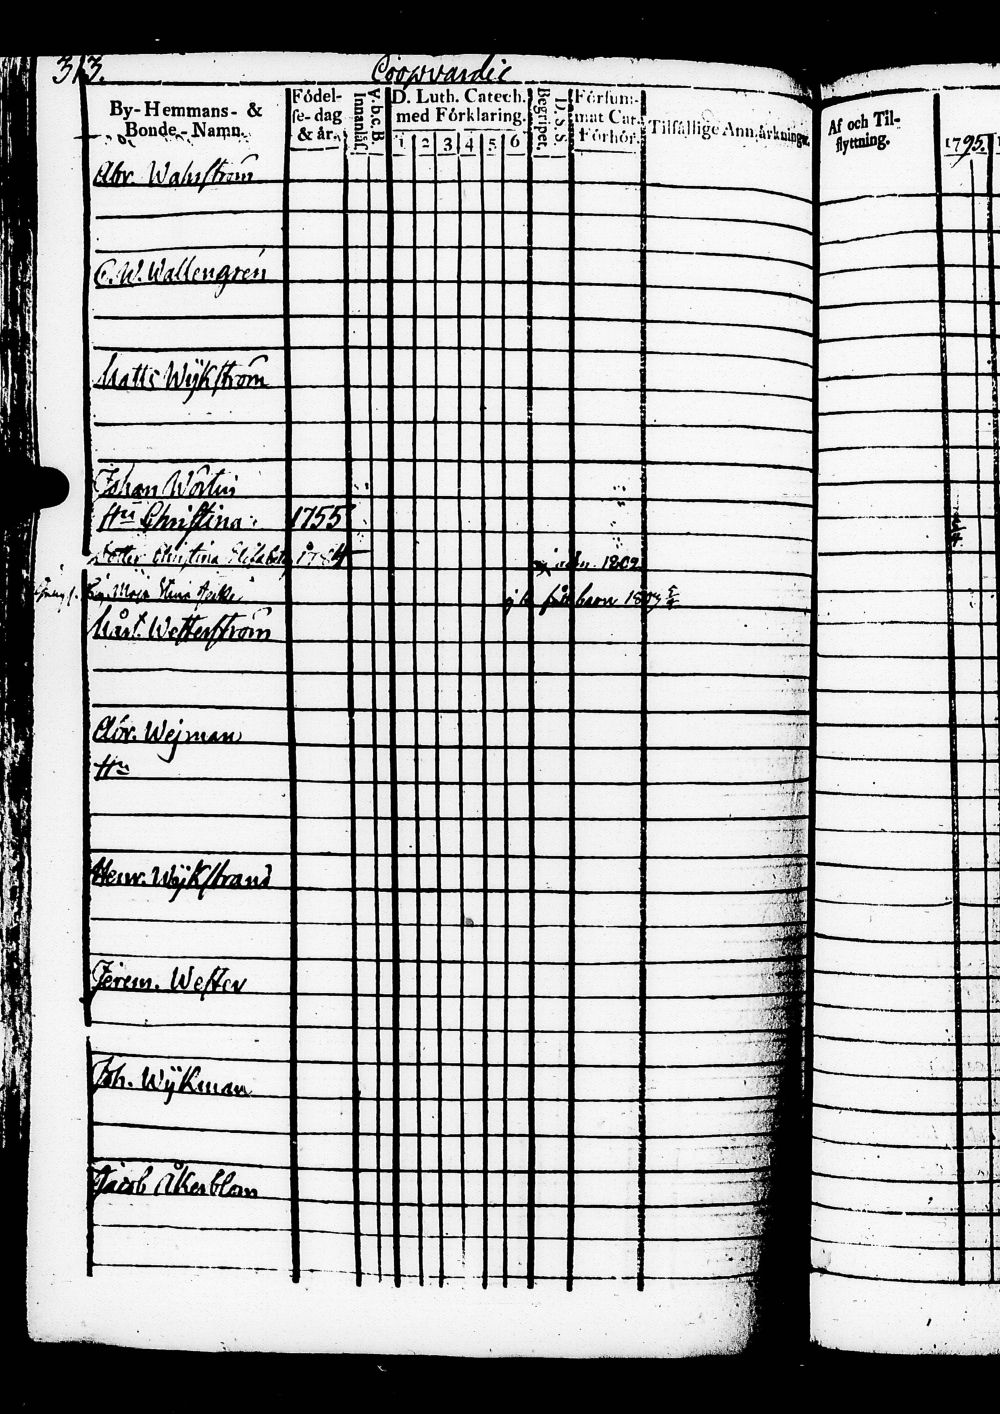 313. Coopvardie
By-Hemmans- & Bonde-Namn.
Födel-se-dag & år.
Innanläs.
V.b.c.B.
D. Luth. Catech. med Förklaring.
1 2 3 4 5 6
Begripet.
D. S. S.
Försum-mat Cat. Förhör.
Tilfällige Anmärkningar.
Af och Til-flyttning.
1795.
Abr. Wahlström
C. W. Wallengren
Matts Wÿkström
Johan Wörlin
Hu Christina 1755
Dotter Christina Elisabeth 1784 1802
Maja Stina barn 1803
Mårt. Wetterström
Abr. Wejman
Hu
Henr. Wÿkstrand
Jerem. Wester
Joh. Wÿkman
Jacob Åkerblom